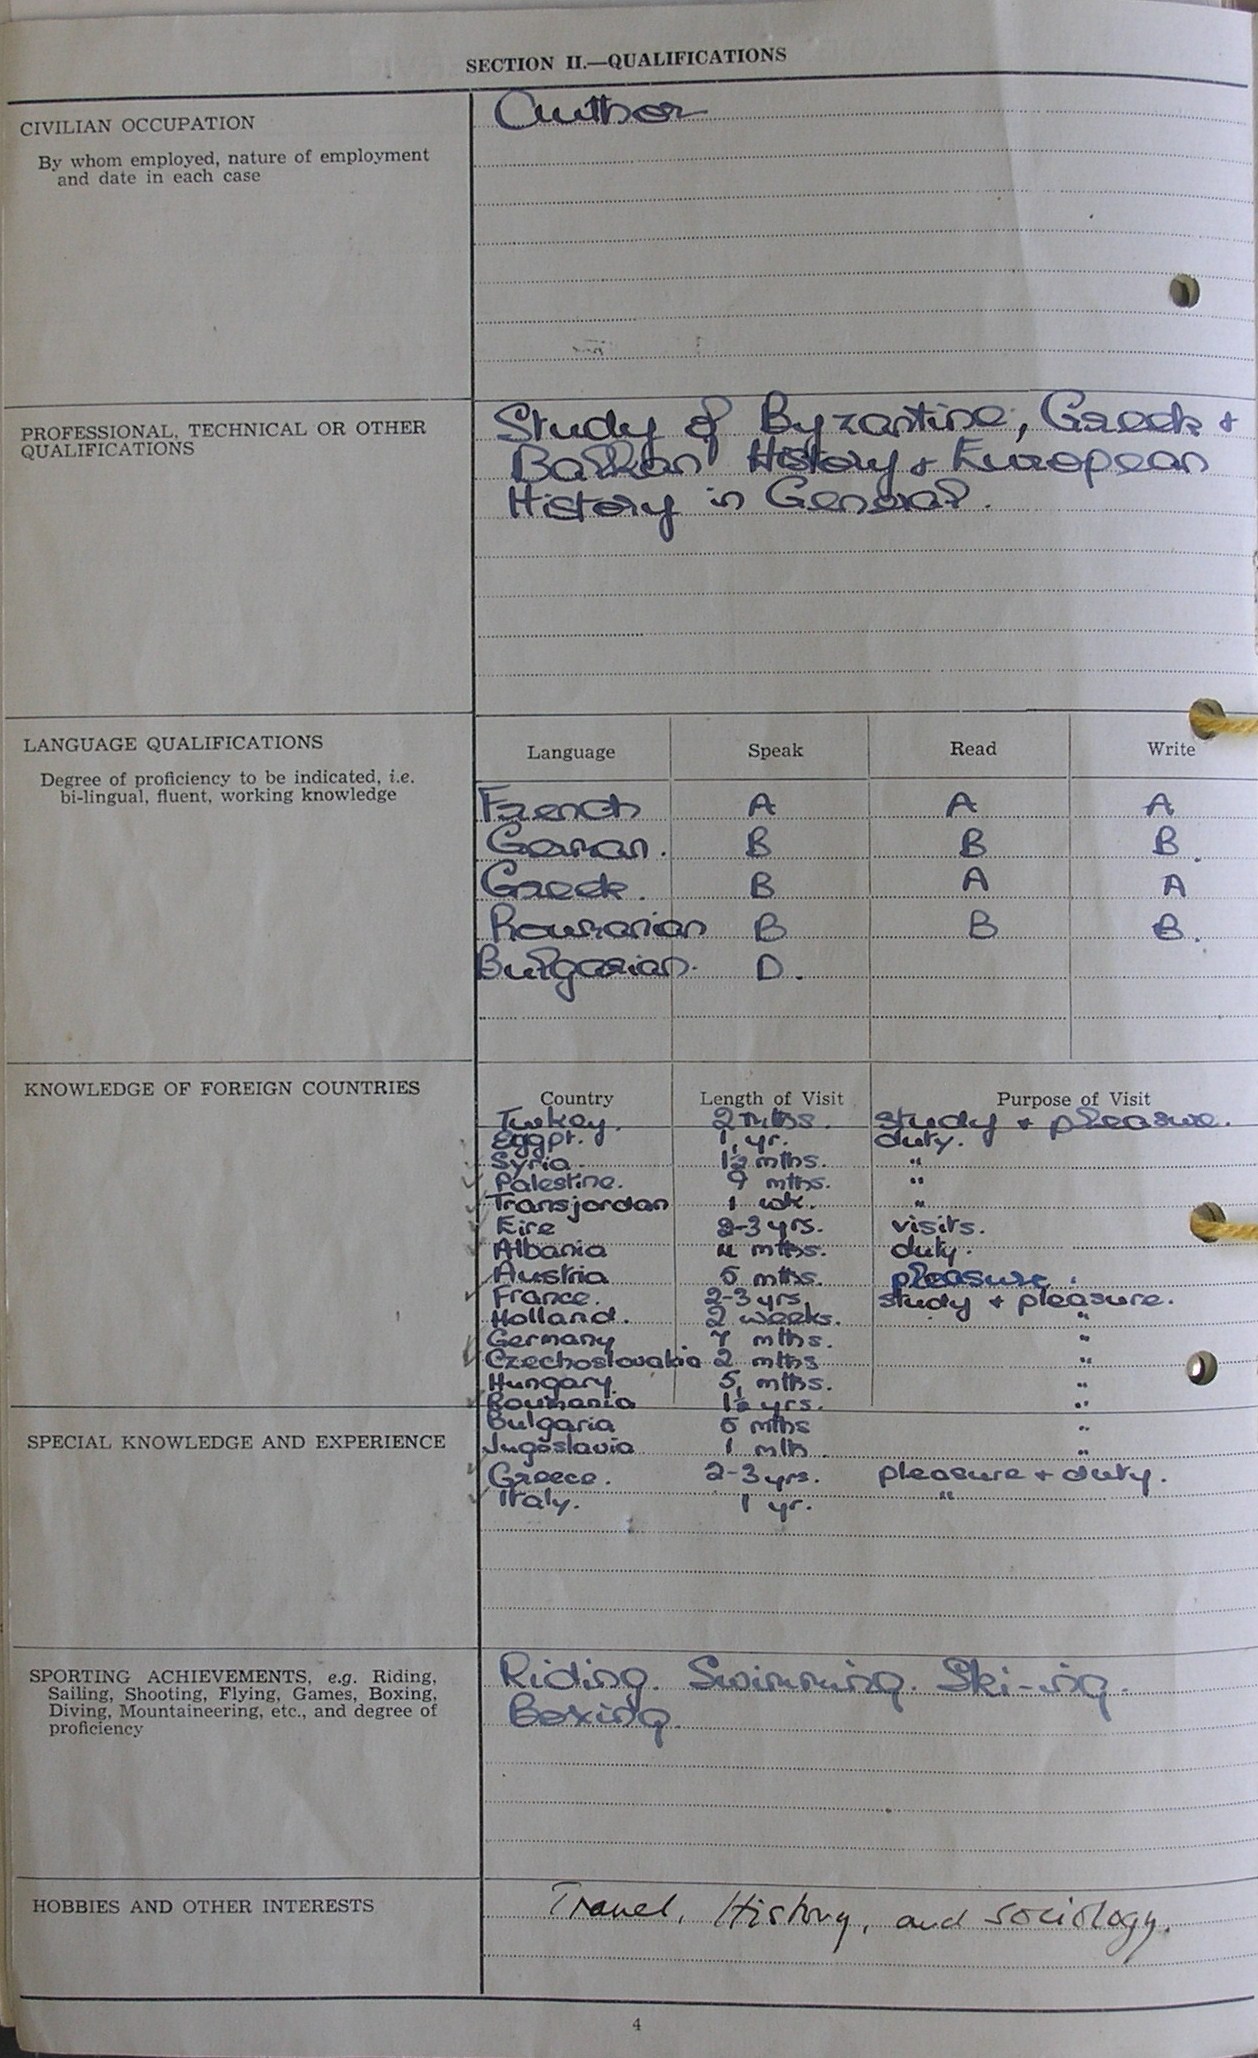 SECTION II.—QUALIFICATIONS
CIVILIAN OCCUPATION
By whom employed, nature of employment
and date in each case
Author
PROFESSIONAL, TECHNICAL OR OTHER
QUALIFICATIONS
Study of Byzantine, Greek +
Balkan History + European
History in General.
LANGUAGE QUALIFICATIONS
Degree of proficiency to be indicated, i.e.
bi-lingual, fluent, working knowledge
Language Speak Read Write
French A A A
German. B B B.
Greek. B A A
Roumanian B B B.
Bulgarian. D.
KNOWLEDGE OF FOREIGN COUNTRIES
Country Length of Visit Purpose of Visit
Turkey. 2 mths. study + pleasure.
Egypt. 1 yr. duty.
Syria 1½ mths. "
Palestine. 9 mths. "
Transjordan 1 wk. "
Eire 2-3 yrs. visits.
Albania mths. duty.
Austria 5 mths. pleasure.
France. 2-3 yrs. study + pleasure.
Holland. 2 weeks. "
Germany 7 mths. "
Czechoslovakia 2 mths "
Hungary. 5 mths. "
Roumania 1½ yrs. "
Bulgaria 5 mths "
SPECIAL KNOWLEDGE AND EXPERIENCE
Jugoslavia 1 mth "
Greece. 2-3 yrs. pleasure + duty.
Italy. 1 yr. "
SPORTING ACHIEVEMENTS, e.g. Riding,
Sailing, Shooting, Flying, Games, Boxing,
Diving, Mountaineering, etc., and degree of
proficiency
Riding. Swimming. Ski-ing.
Boxing.
HOBBIES AND OTHER INTERESTS
Travel, History, and sociology.
4